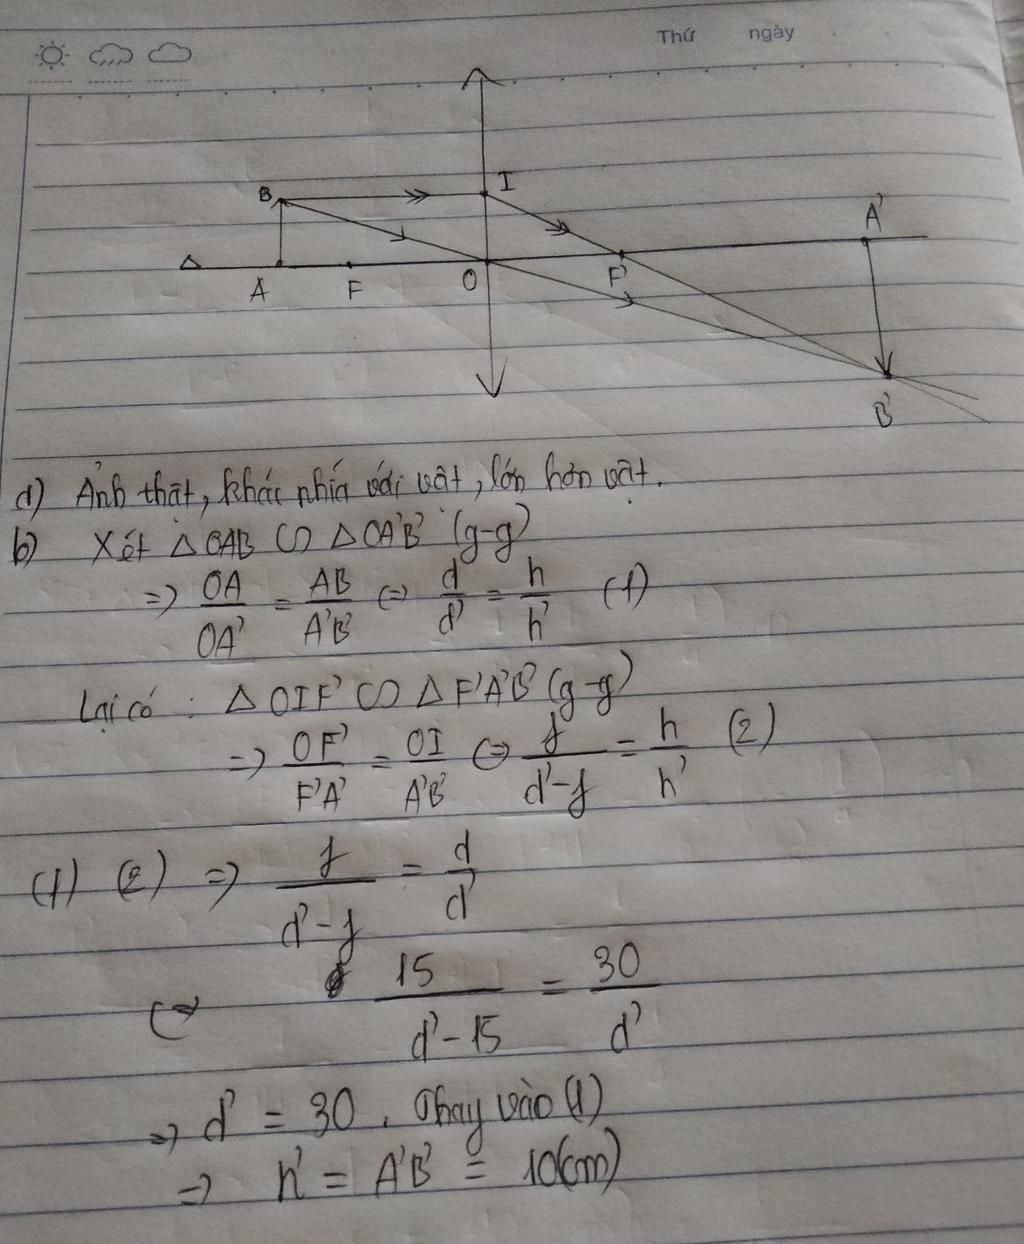 Thứ ngày
B I A'
Δ A F O F'
B'
a) Ảnh thật, khác phía với vật, lớn hơn vật.
b) Xét Δ OAB ∽ Δ OA'B' (g-g)
=> OA/OA' = AB/A'B' <=> d/d' = h/h' (1)
Lại có : Δ OIF' ∽ Δ F'A'B' (g-g)
=> OF'/F'A' = OI/A'B' <=> f/d'-f = h/h' (2)
(1) (2) => f/d'-f = d/d'
<=> 15/d'-15 = 30/d'
=> d' = 30. Thay vào (1)
=> h' = A'B' = 10(cm)